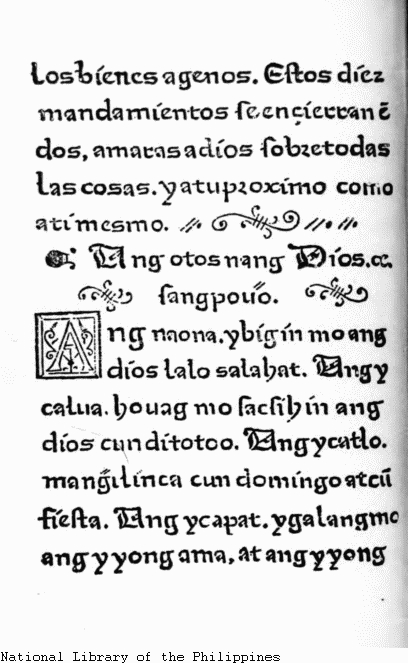 losbienes agenos. Eſtos diez
mandamientos ſe encierran ẽ
dos, amaras a dios ſobre todas
las cosas. y atu proximo como
ati mesmo.
Ang otos nang Dios. ae.
ſangpouo.
Ang naona. ybigin mo ang
dios lalo salahat. Ang y
calua. houag mo ſacſihin ang
dios cun ditotoo. Ang ycatlo.
mangilinca cun domingo at cũ
fieſta. Ang ycapat. ygalang mo
ang yyong ama, at ang yyong
National Library of the Philippines